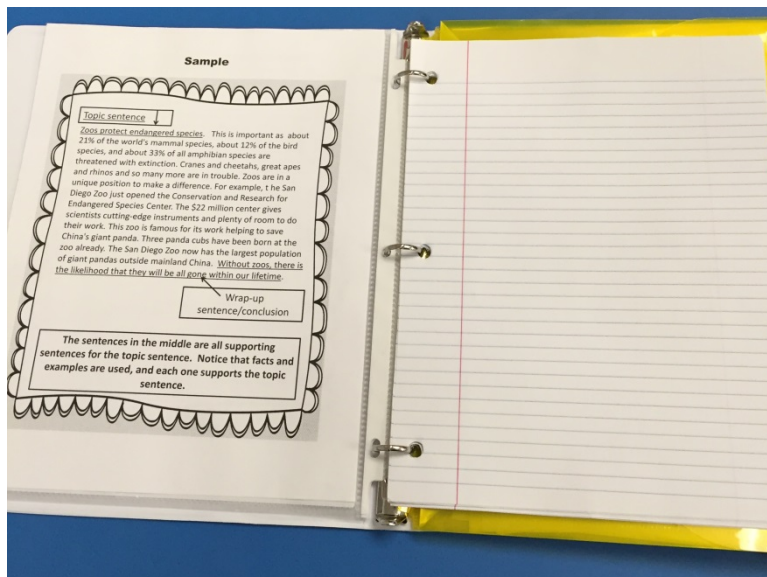 Sample
Topic sentence
Zoos protect endangered species. This is important as about
21% of the world's mammal species, about 12% of the bird
species, and about 33% of all amphibian species are
threatened with extinction. Cranes and cheetahs, great apes
and rhinos and so many more are in trouble. Zoos are in a
unique position to make a difference. For example, t he San
Diego Zoo just opened the Conservation and Research for
Endangered Species Center. The $22 million center gives
scientists cutting-edge instruments and plenty of room to do
their work. This zoo is famous for its work helping to save
China's giant panda. Three panda cubs have been born at the
zoo already. The San Diego Zoo now has the largest population
of giant pandas outside mainland China. Without zoos, there is
the likelihood that they will be all gone within our lifetime.
Wrap-up
sentence/conclusion
The sentences in the middle are all supporting
sentences for the topic sentence. Notice that facts and
examples are used, and each one supports the topic
sentence.